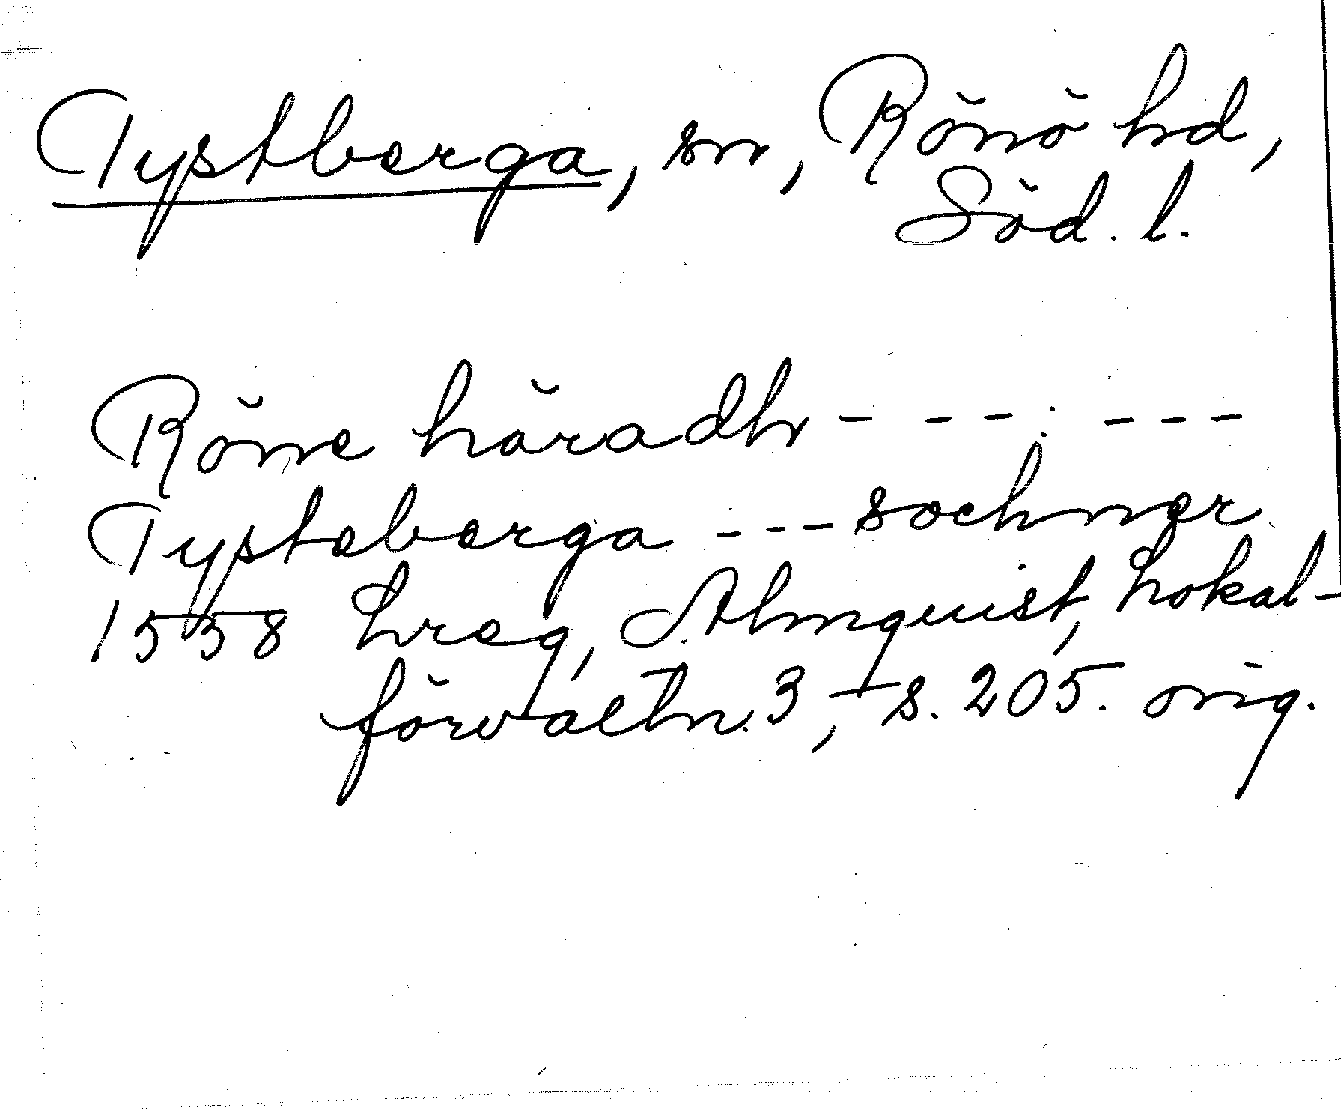 Tystberga, sn, Rönö hd,
Söd. l.
Röne häradh - - - : - - -
Tysteberga - - - sochner
1558 Lreg, Almquist, Lokal-
förvaltn. 3, s. 205. orig.